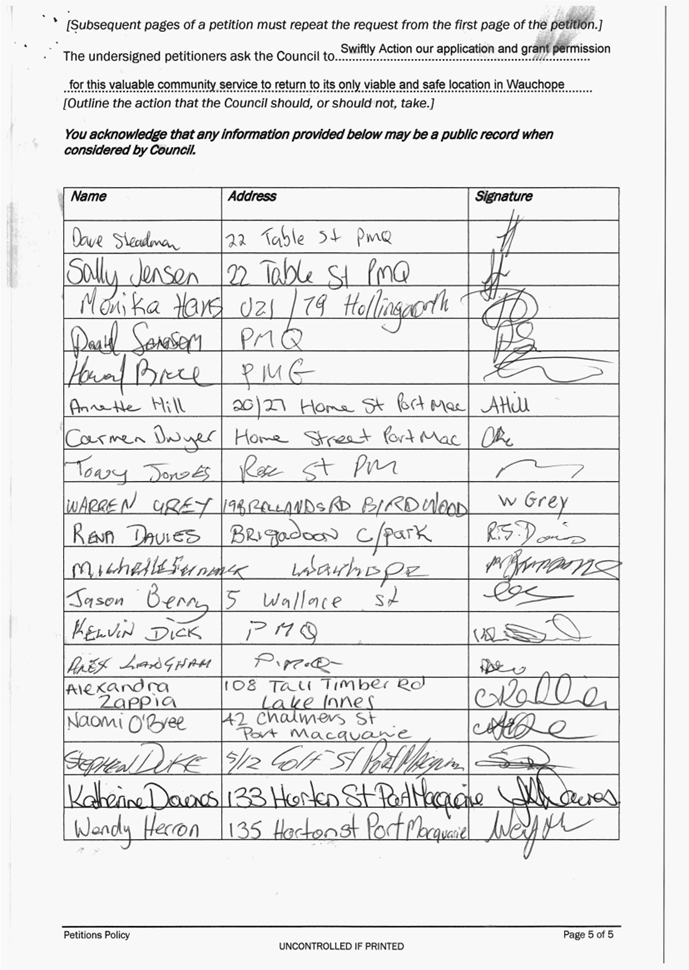 [Subsequent pages of a petition must repeat the request from the first page of the petition.]
The undersigned petitioners ask the Council to Swiftly Action our application and grant permission
for this valuable community service to return to its only viable and safe location in Wauchope
[Outline the action that the Council should, or should not, take.]
You acknowledge that any information provided below may be a public record when
considered by Council.
Name Address Signature
Dave Steadman 22 Table St PMQ
Sally Jensen 22 Table St PMQ
Monika Hans U21/79 Hollingworth
PMQ
PMG
Annette Hill 20/27 Home St Port Mac AHill
Carmen Dwyer Home Street Port Mac
Tony Jones Rose St PM
WARREN GREY BIRDWOOD W Grey
RENA DAVIES BRIGADOON C/PARK R.S. Davis
Michelle Wauchope
Jason Berry 5 Wallace St
KELVIN DICK PMQ
ALEX LANGHAM P.M.Q
Alexandra 108 Tall Timber Rd
Zappia Lake Innes
Naomi O'Bree 42 Chalmers St
Port Macquarie
STEPHEN DUKE 5/12 Golf St Port Macquarie
Katherine Downes 133 Horton St Port Macquarie
Wendy Herron 135 Horton st Port Macquarie
Petitions Policy Page 5 of 5
UNCONTROLLED IF PRINTED